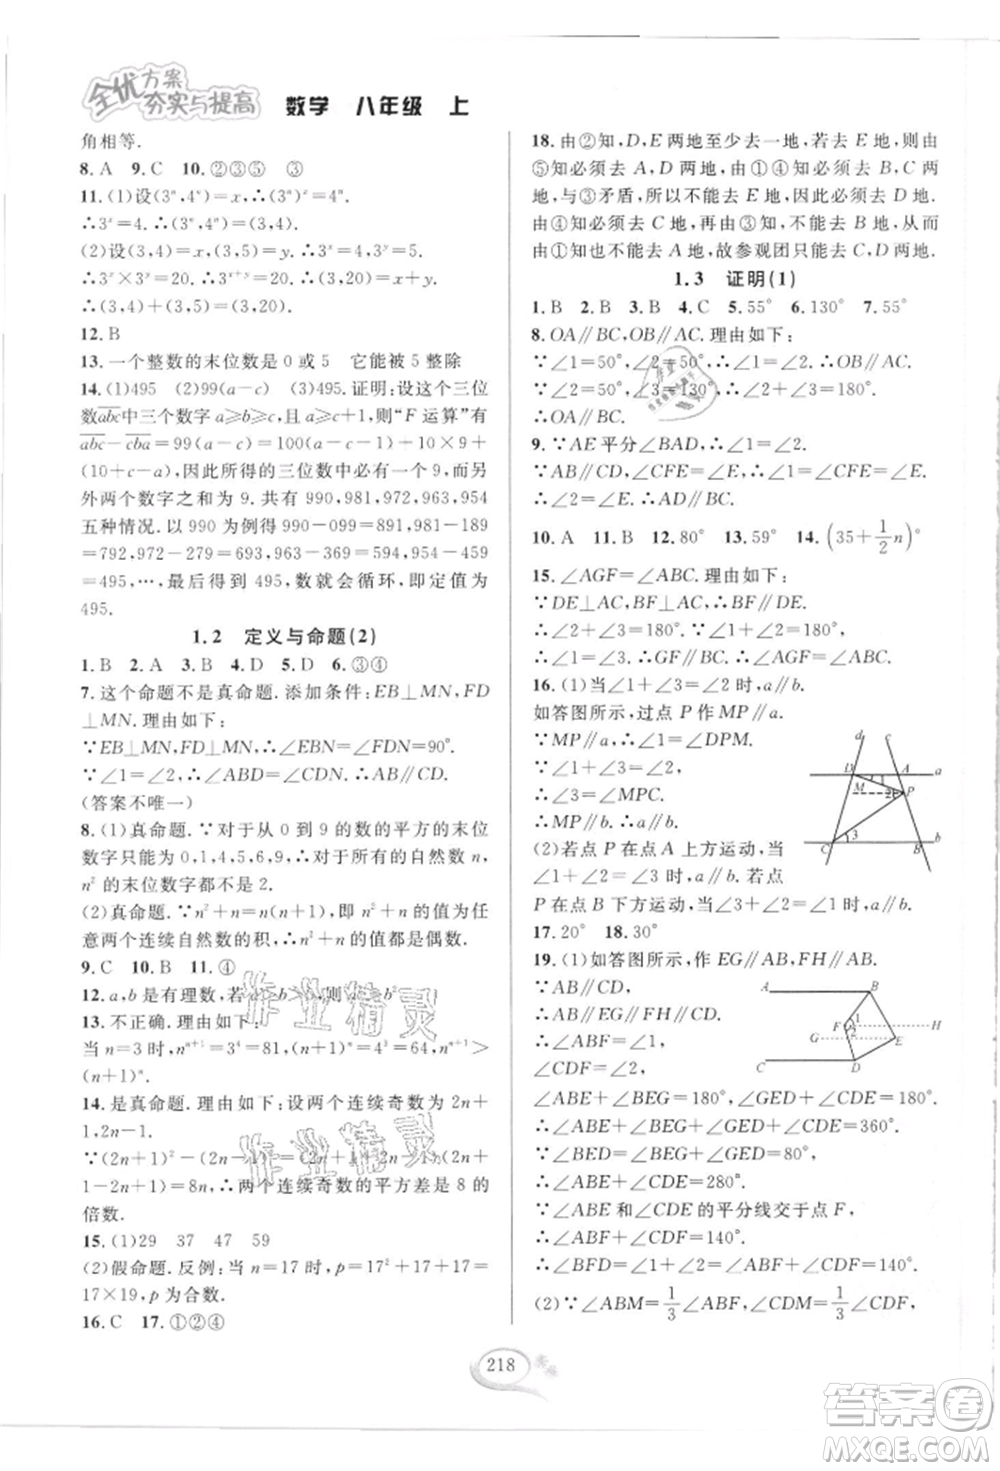 全优方案
夯实与提高 数学 八年级 上
角相等.
8. A 9. C 10. ②③⑤ ③
11. (1)设(3ⁿ,4ⁿ)=x,∴(3ⁿ)ˣ=4ⁿ.
∴3ˣ=4.∴(3ⁿ,4ⁿ)=(3,4).
(2)设(3,4)=x,(3,5)=y.∴3ˣ=4,3ʸ=5.
∴3ˣ×3ʸ=20.∴3ˣ⁺ʸ=20.∴(3,20)=x+y.
∴(3,4)+(3,5)=(3,20).
12. B
13. 一个整数的末位数是 0 或 5 它能被 5 整除
14. (1)495 (2)99(a-c) (3)495.证明:设这个三位
数abc中三个数字 a≥b≥c,且 a≥c+1,则“F 运算”有
abc-cba=99(a-c)=100(a-c-1)+10×9+
(10+c-a),因此所得的三位数中必有一个 9.而另
外两个数字之和为 9.共有 990,981,972,963,954
五种情况.以 990 为例得:990-099=891,981-189
=792,972-279=693,963-369=594,954-459=
495,…,最后得到 495,数就会循环,即定值为
495.
1.2 定义与命题(2)
1. B 2. A 3. B 4. D 5. D 6. ③④
7. 这个命题不是真命题.添加条件:EB⊥MN,FD
⊥MN.理由如下:
∵EB⊥MN,FD⊥MN,∴∠EBN=∠FDN=90°.
∵∠1=∠2,∴∠ABD=∠CDN.∴AB∥CD.
(答案不唯一)
8. (1)真命题.∵对于从 0 到 9 的数的平方的末位
数字只能为 0,1,4,5,6,9,∴对于所有的自然数 n,
n² 的末位数字都不是 2.
(2)真命题.∵n²+n=n(n+1),即 n²+n 的值为任
意两个连续自然数的积,∴n²+n 的值都是偶数.
9. C 10. B 11. ④
12. a,b 是有理数,若 a>b>0,则 a²>b²
13. 不正确.理由如下:
当 n=3 时,nⁿ⁺¹=3⁴=81,(n+1)ⁿ=4³=64,nⁿ⁺¹>
(n+1)ⁿ.
14. 是真命题.理由如下:设两个连续奇数为 2n+
1,2n-1.
∵(2n+1)²-(2n-1)²=(2n+1+2n-1)(2n+
1-2n+1)=8n.∴两个连续奇数的平方差是 8 的
倍数.
15. (1)29 37 47 59
(2)假命题.反例:当 n=17 时,p=17²+17+17=
17×19,p 为合数.
16. C 17. ①②④
18. 由②知,D,E 两地至少去一地,若去 E 地,则由
⑤知必须去 A,D 两地,由①④知必须去 B,C 两
地,与③矛盾,所以不能去 E 地,因此必须去 D 地.
由④知必须去 C 地.再由③知,不能去 B 地,从而
由①知也不能去 A 地,故参观团只能去 C,D 两地.
1.3 证明(1)
1. B 2. B 3. B 4. C 5. 55° 6. 130° 7. 55°
8. OA∥BC,OB∥AC.理由如下:
∵∠1=50°,∠2=50°,∴∠1=∠2.∴OB∥AC.
∵∠2=50°,∠3=130°,∴∠2+∠3=180°.
∴OA∥BC.
9. ∵AE 平分∠BAD,∴∠1=∠2.
∵AB∥CD,∠CFE=∠E,∴∠1=∠CFE=∠E.
∴∠2=∠E.∴AD∥BC.
10. A 11. B 12. 80° 13. 59° 14. (35+1/2n)°
15. ∠AGF=∠ABC.理由如下:
∵DE⊥AC,BF⊥AC,∴BF∥DE.
∴∠2+∠3=180°.∵∠1+∠2=180°,
∴∠1=∠3.∴GF∥BC.∴∠AGF=∠ABC.
16. (1)当∠2=∠1+∠3 时,a∥b.
如答图所示,过点 P 作 MP∥a.
∵MP∥a,∴∠1=∠DPM.
∵∠2=∠1+∠3,
∴∠3=∠MPC.
∴MP∥b.∴a∥b.
(2)若点 P 在点 A 上方运动,当
∠2+∠1=∠3 时,a∥b.若点
P 在点 B 下方运动,当∠1=∠2+∠3 时,a∥b.
d c
D 1 A a
M 2 P
3
C B b
17. 20° 18. 30°
19. (1)如答图所示,作 EG∥AB,FH∥AB.
∵AB∥CD,
∴AB∥EG∥FH∥CD.
∴∠ABF=∠1,
∠CDF=∠2,
A B
F 1 H
G E
C D
∠ABE+∠BEG=180°,∠GED+∠CDE=180°.
∴∠ABE+∠BEG+∠GED+∠CDE=360°.
∵∠BED=∠BEG+∠GED=80°,
∴∠ABE+∠CDE=280°.
∵∠ABE 和∠CDE 的平分线交于点 F,
∴∠ABF+∠CDF=140°.
∴∠BFD=∠1+∠2=∠ABF+∠CDF=140°.
(2)∵∠ABM=1/3∠ABF,∠CDM=1/3∠CDF,
218
作业精灵
作业精灵
答案圈
MXQE.COM